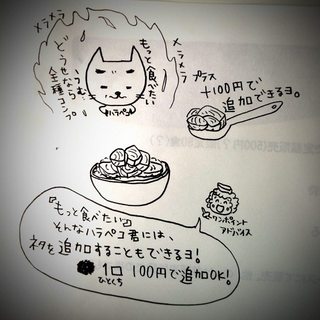 メラメラ
メラメラ
もっと食べたい
うむ…
どうせなら
全種コンプ
ハラペコ
プラス
+100円で
追加できるヨ。
ワンポイント
アドバイス
『もっと食べたい』
そんなハラペコ君には、
ネタを追加することもできるヨ!
1口 100円で追加OK!
ひとくち